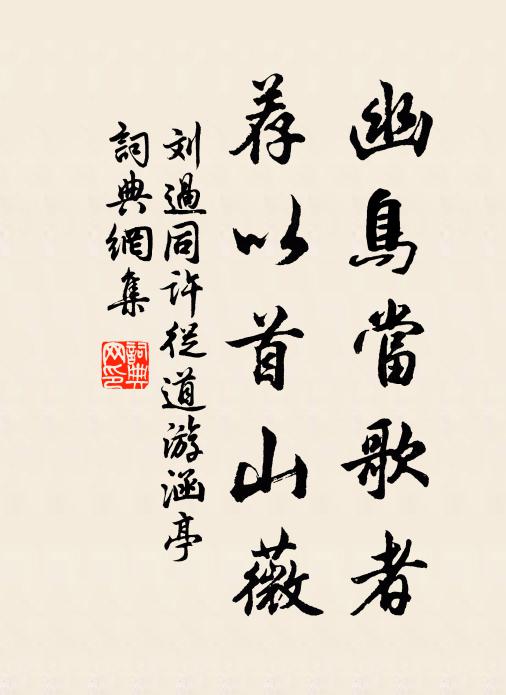 幽鳥當歌者
荐以首山薇
刘過同許從道游涵亭
詞典網集
詞典網印